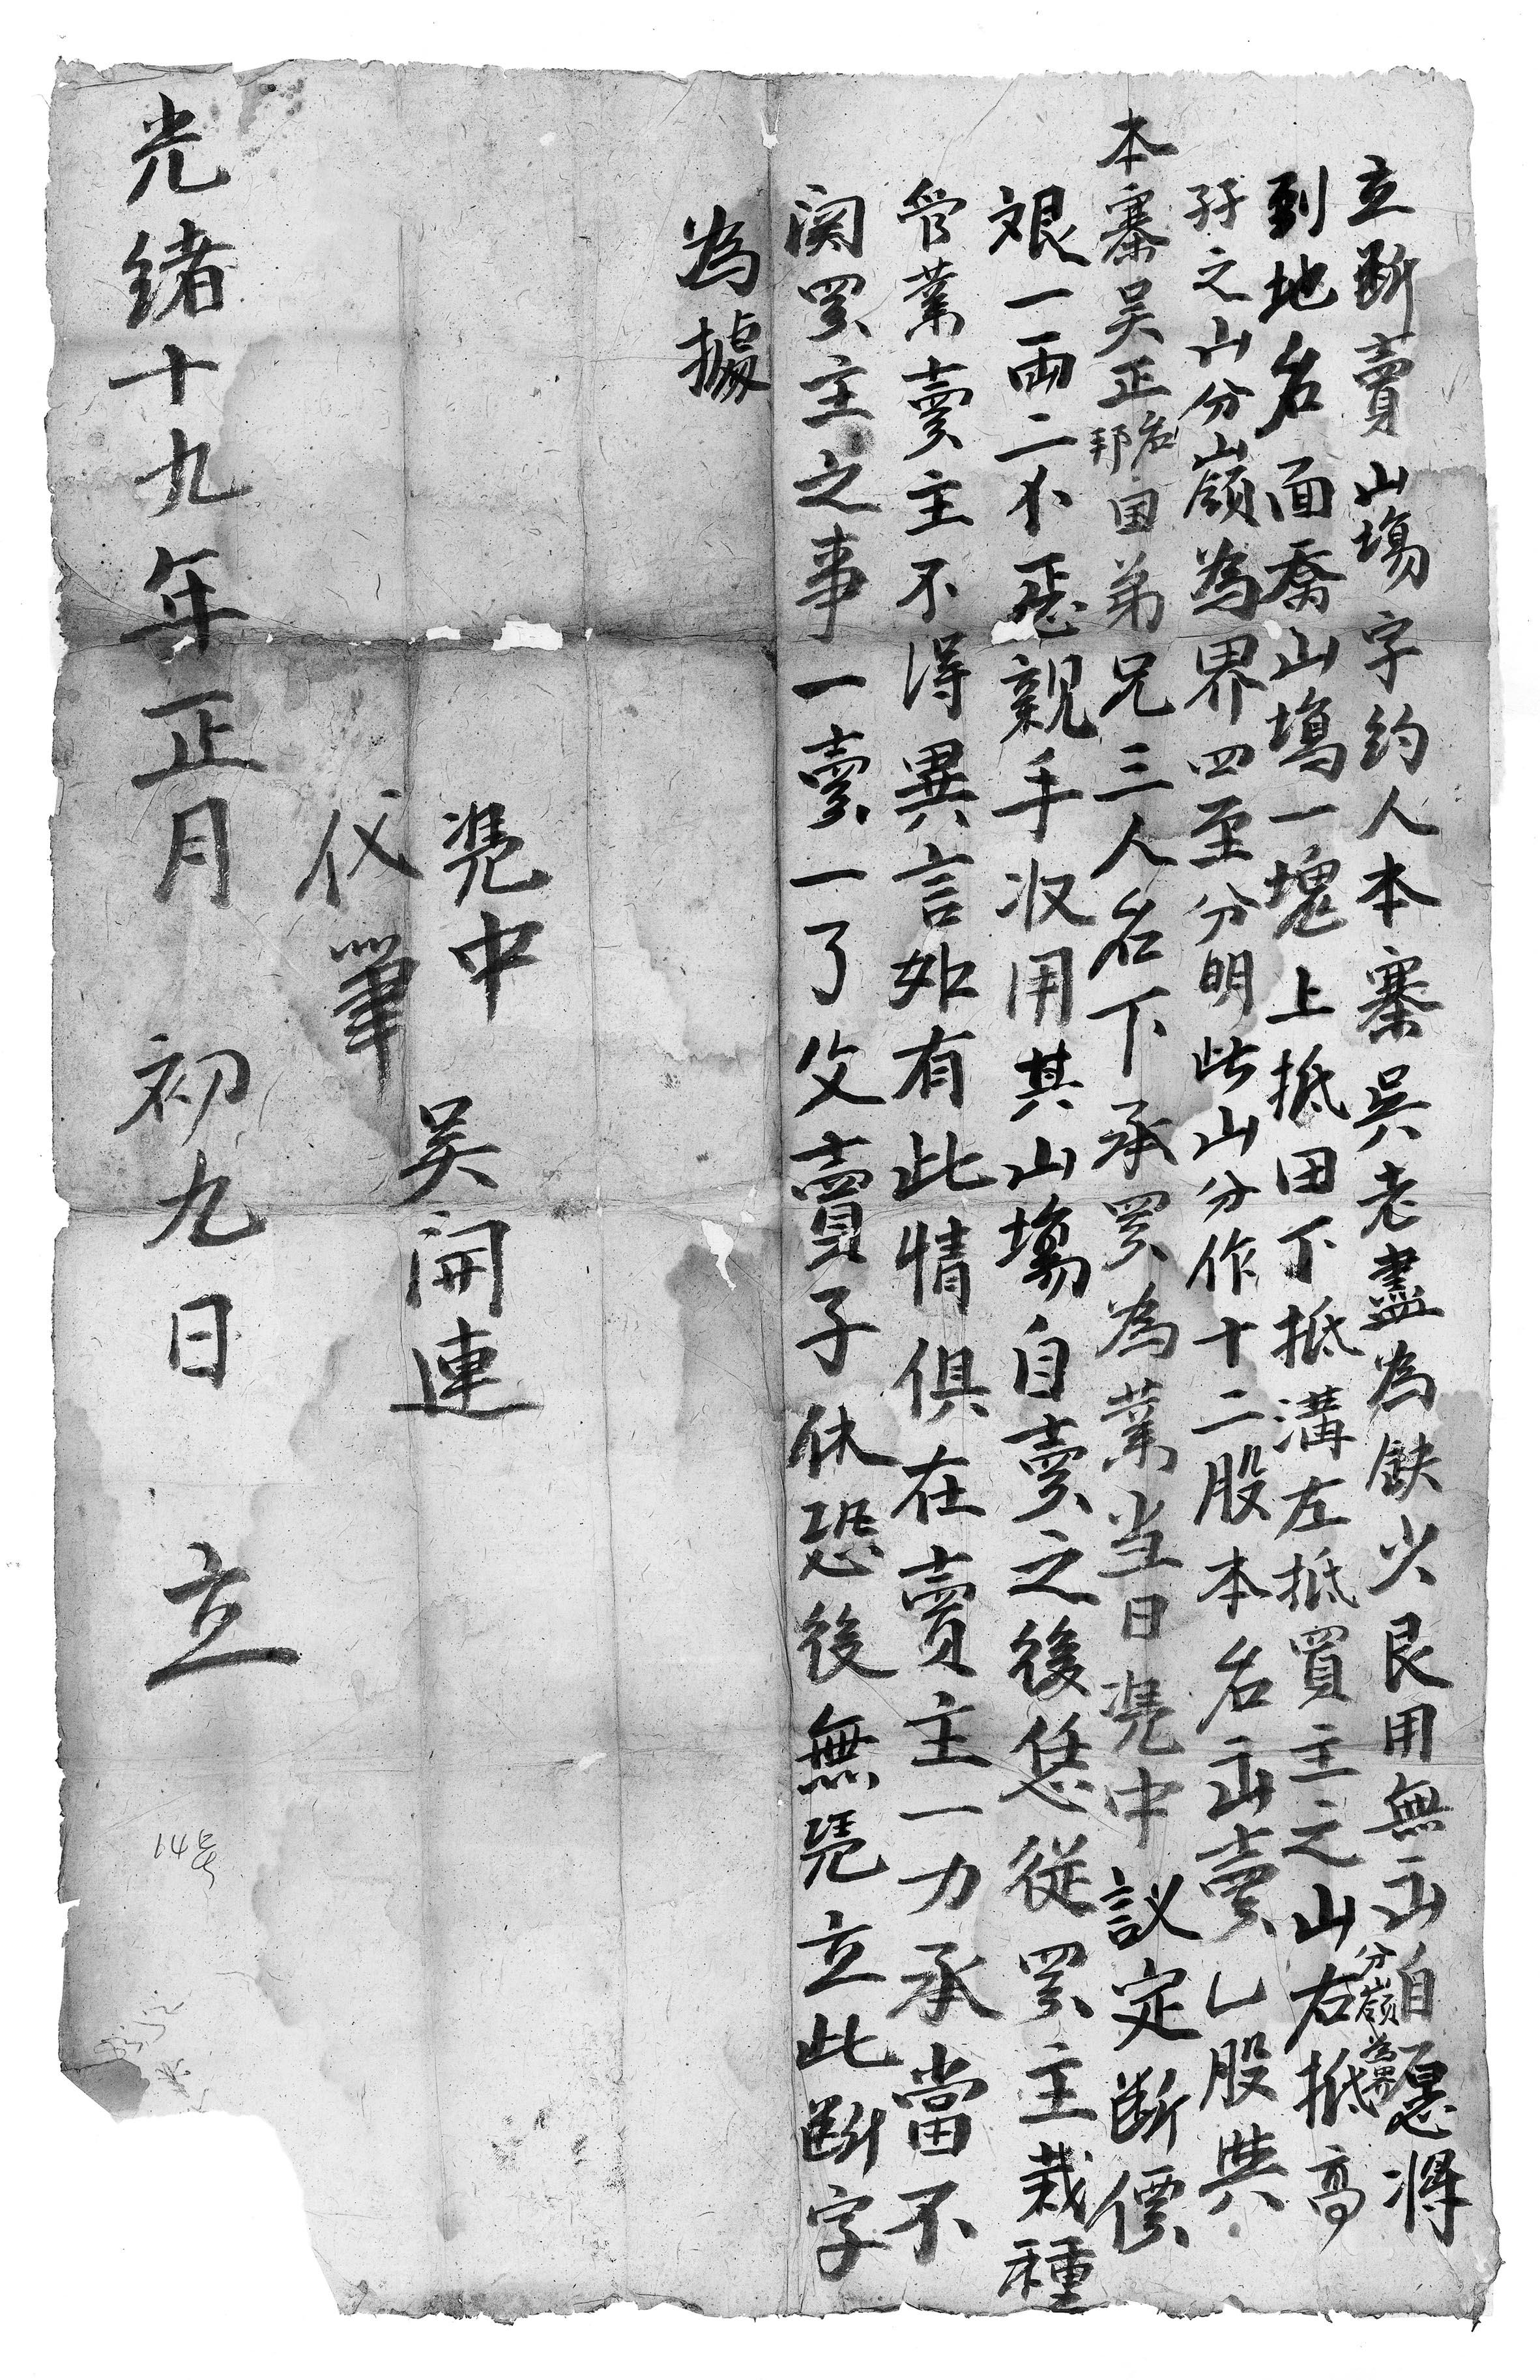 立断賣山塲字約人本寨吳老盡為缺少艮用無出自愿將
到地名面喬山塲一塊上抵田下抵溝左抵買主之山分嶺為界右抵高
孖之山分嶺為界四至分明此山分作十二股本名出賣乚股與
本寨吴正名邦国弟兄三人名下承買為業当日凴中議定断價
艮一両二卜正親手収用其山塲自賣之後恁從買主栽種
管業賣主不得異言如有此情俱在賣主一力承當不
関買主之事一賣一了父賣子休恐後無凴立此断字
為據
凴中
吴開連
代筆
光緒十九年正月初九日立
14号